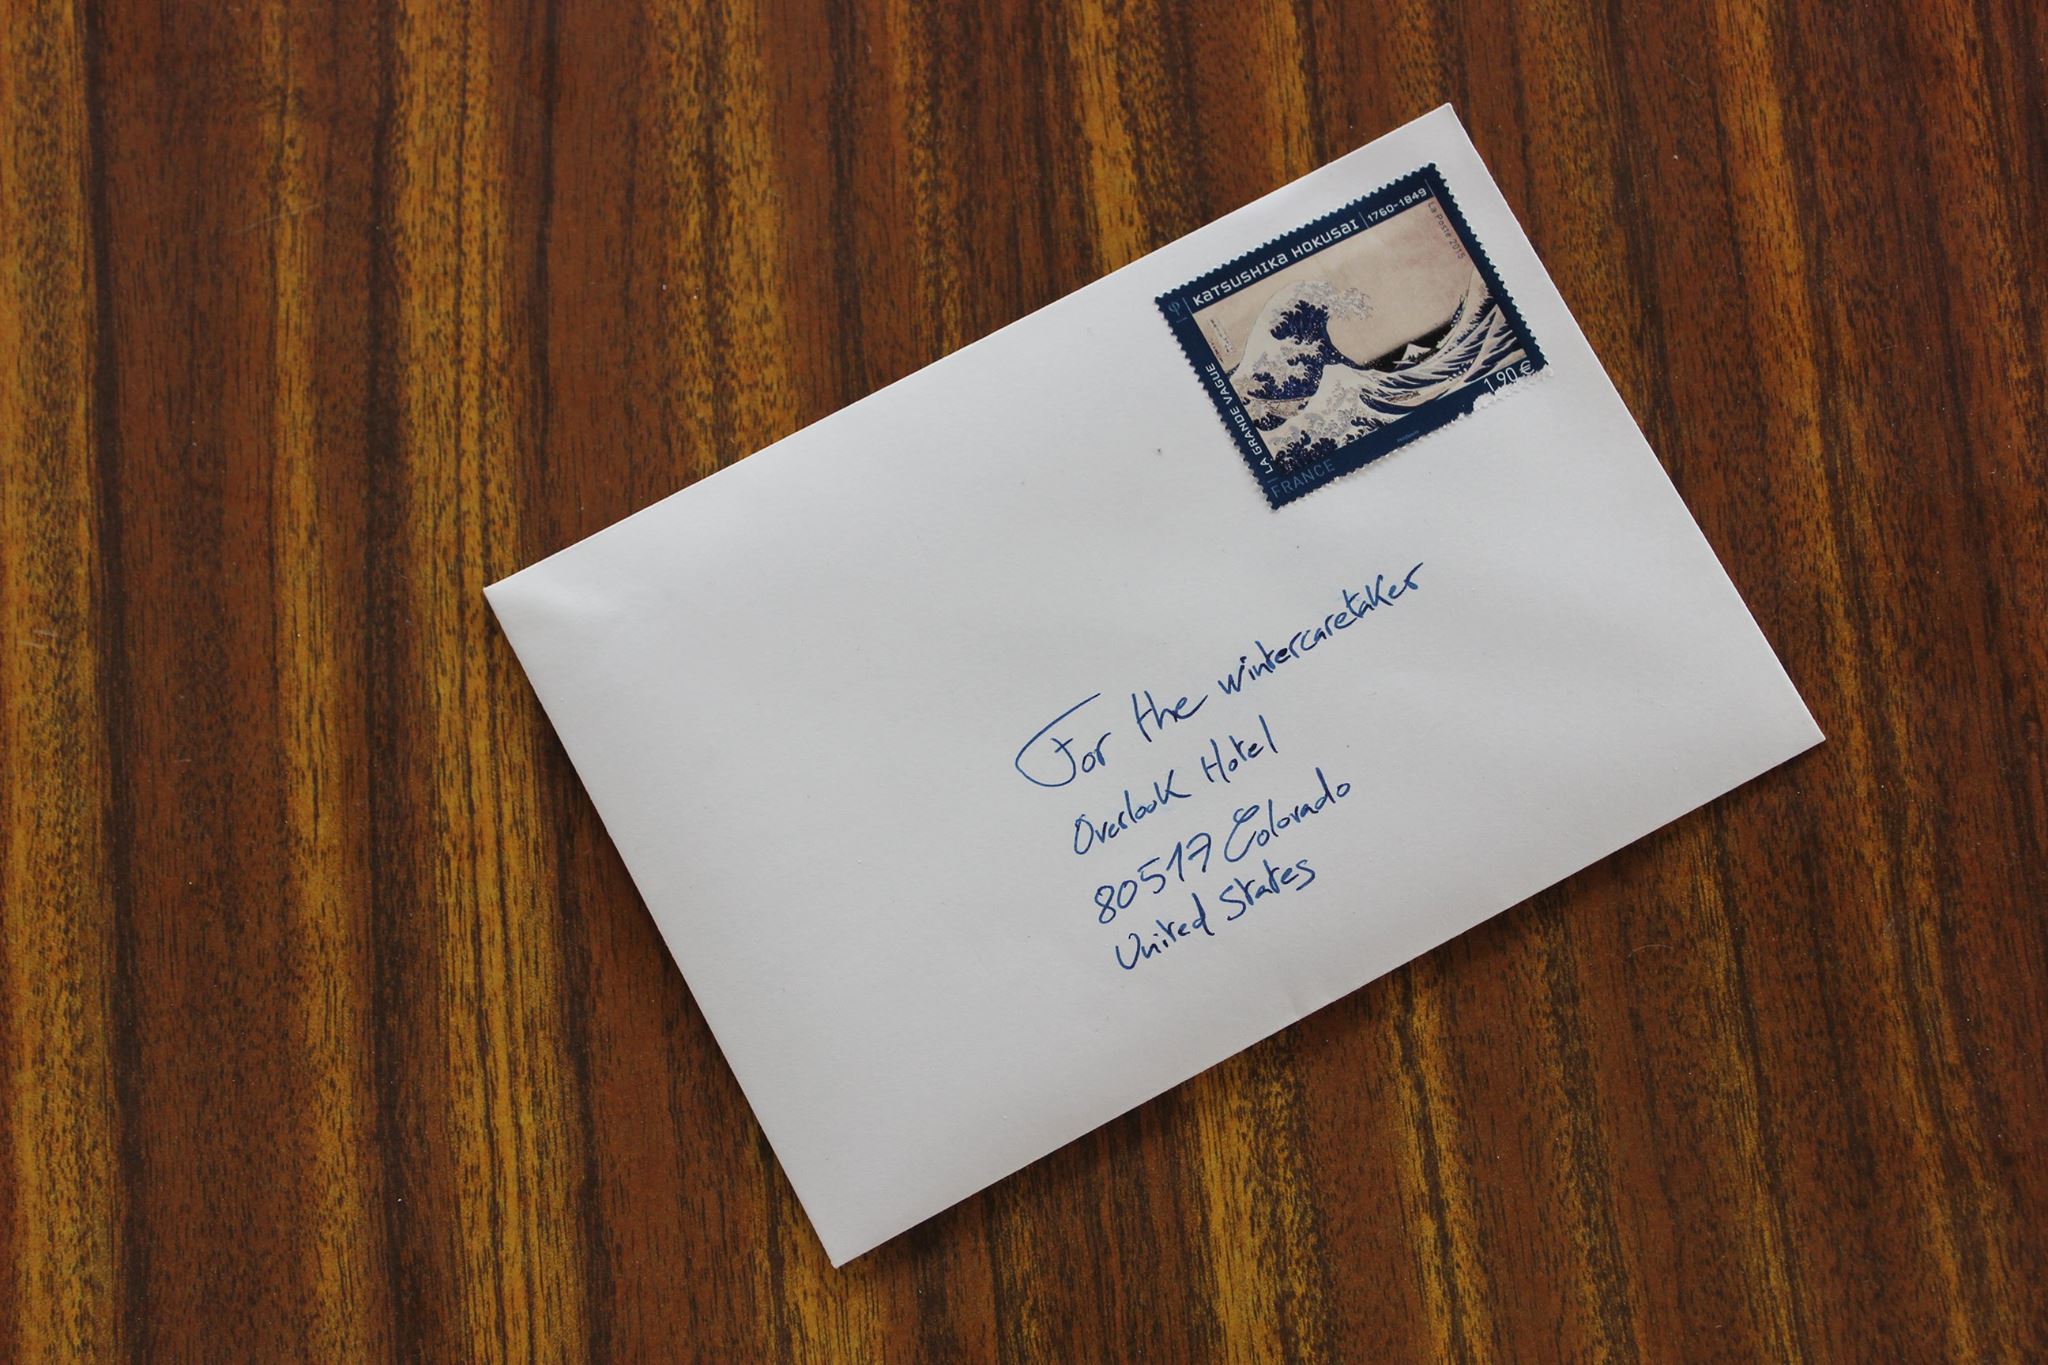 KATSUSHIKA HOKUSAI | 1760-1849
La Poste 2015
LA GRANDE VAGUE
1,90 €
FRANCE
For the wintercaretaker
Overlook Hotel
80517 Colorado
United States